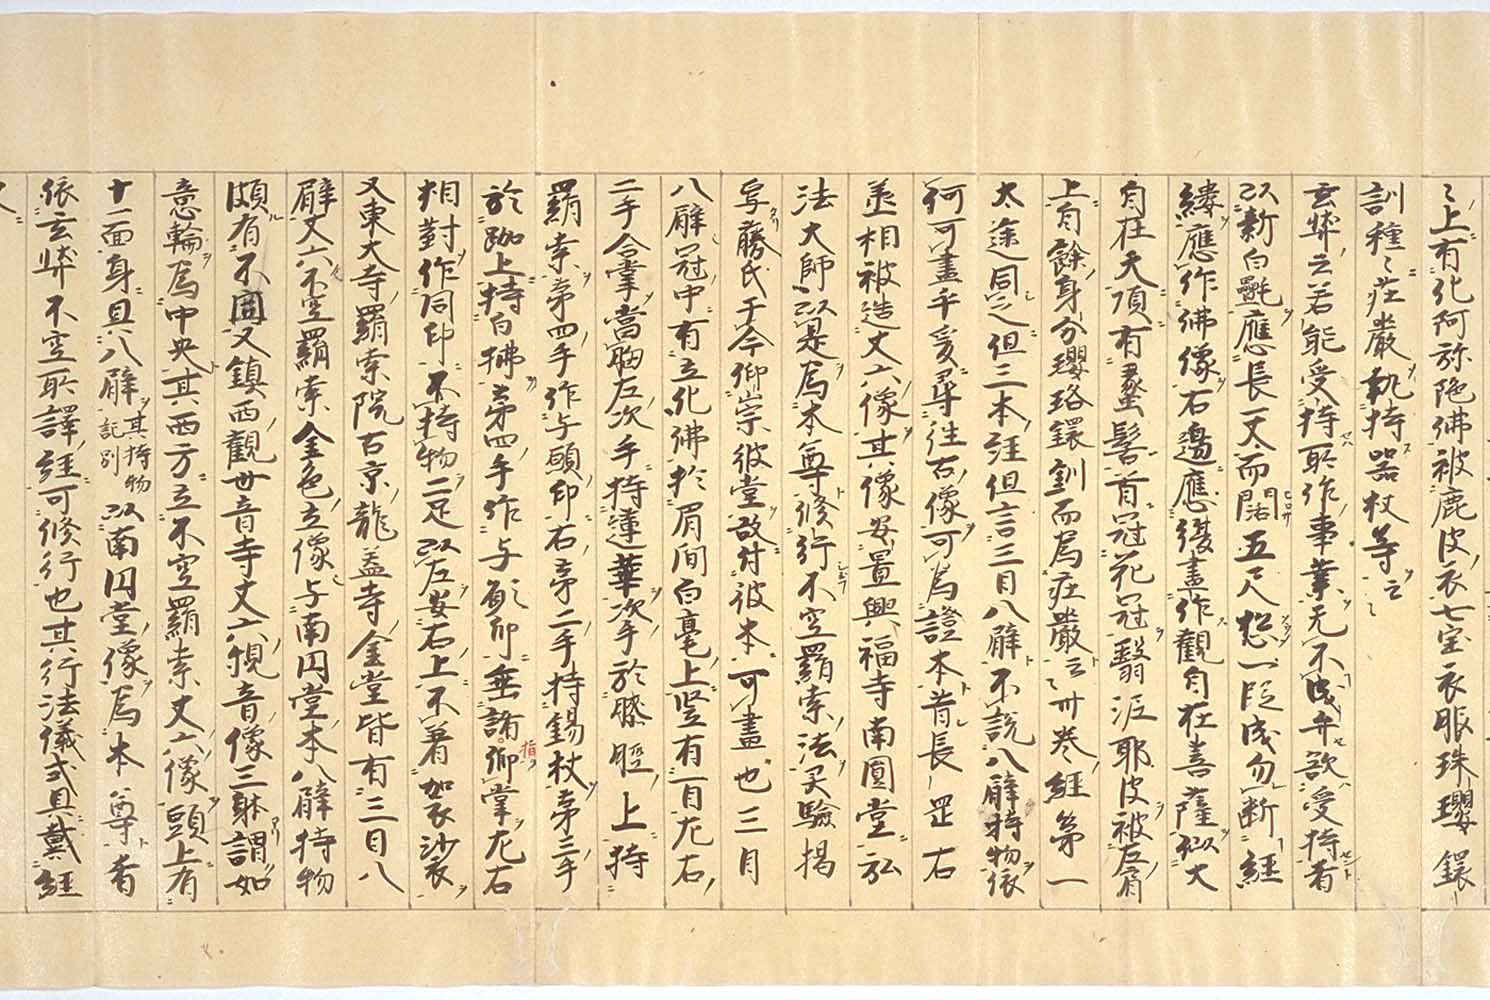 〻上有化阿弥陀佛被鹿皮衣七宝衣服珠瓔鐶
釧種〻荘厳執持器杖等云〻
玄奘云若能受持所作事業无不成弁欲受持者
以新白㲲應長一丈而闊五尺勿断經
縷應作佛像右邊應畫作觀自在菩薩似大
自在天頂有螺髻首冠花冠翳泥耶皮被左肩
上自餘身分瓔珞鐶釧而為荘厳云〻卅巻經第一
大途同之但三本經但言三目八臂不説八臂持物依
何可畫乎爰尋往古像可為證本昔長岡右
丞相被造丈六像其像安置興福寺南圓堂弘
法大師以是為本尊修行不空羂索法灵驗掲
焉藤氏于今仰崇彼堂故付彼本可畫也三目
八臂冠中有立化佛於眉間白毫上竪有一目左右
二手合掌當胸左次手持蓮華次手於膝上持
羂索第四手作与願印右第二手持錫杖第三手
於跏上持白拂第四手作与願印垂諸仰掌左右
指
相對作同印不持物二足以左安右上不著加衣沙衣
又東大寺羂索院右京龍蓋寺金堂皆有三目八
臂丈六不空羂索金色立像与南円堂本八臂持物
頗有不同又鎮西觀世音寺丈六觀音像三躰謂如
意輪為中央其西方立不空羂索丈六像頭上有
十一面身且八臂其持物記別以南円堂像為本尊者
依玄奘不空所譯經可修行也其行法儀式具戴經
文